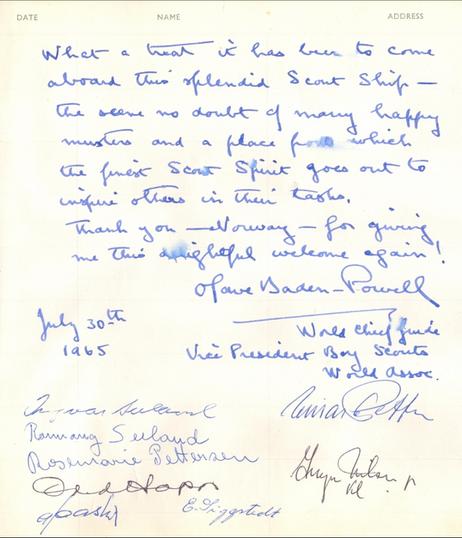 DATE NAME ADDRESS
What a treat it has been to come
aboard this splendid Scout Ship —
the scene no doubt of many happy
musters and a place from which
the finest Scout Spirit goes out to
inspire others in their tasks.
Thank you — Norway — for giving
me this delightful welcome again!
Olave Baden-Powell
World Chief Guide
July 30th
1965
Vice President Boy Scouts
World Assoc.
Seeland
Rosemarie Pettersen